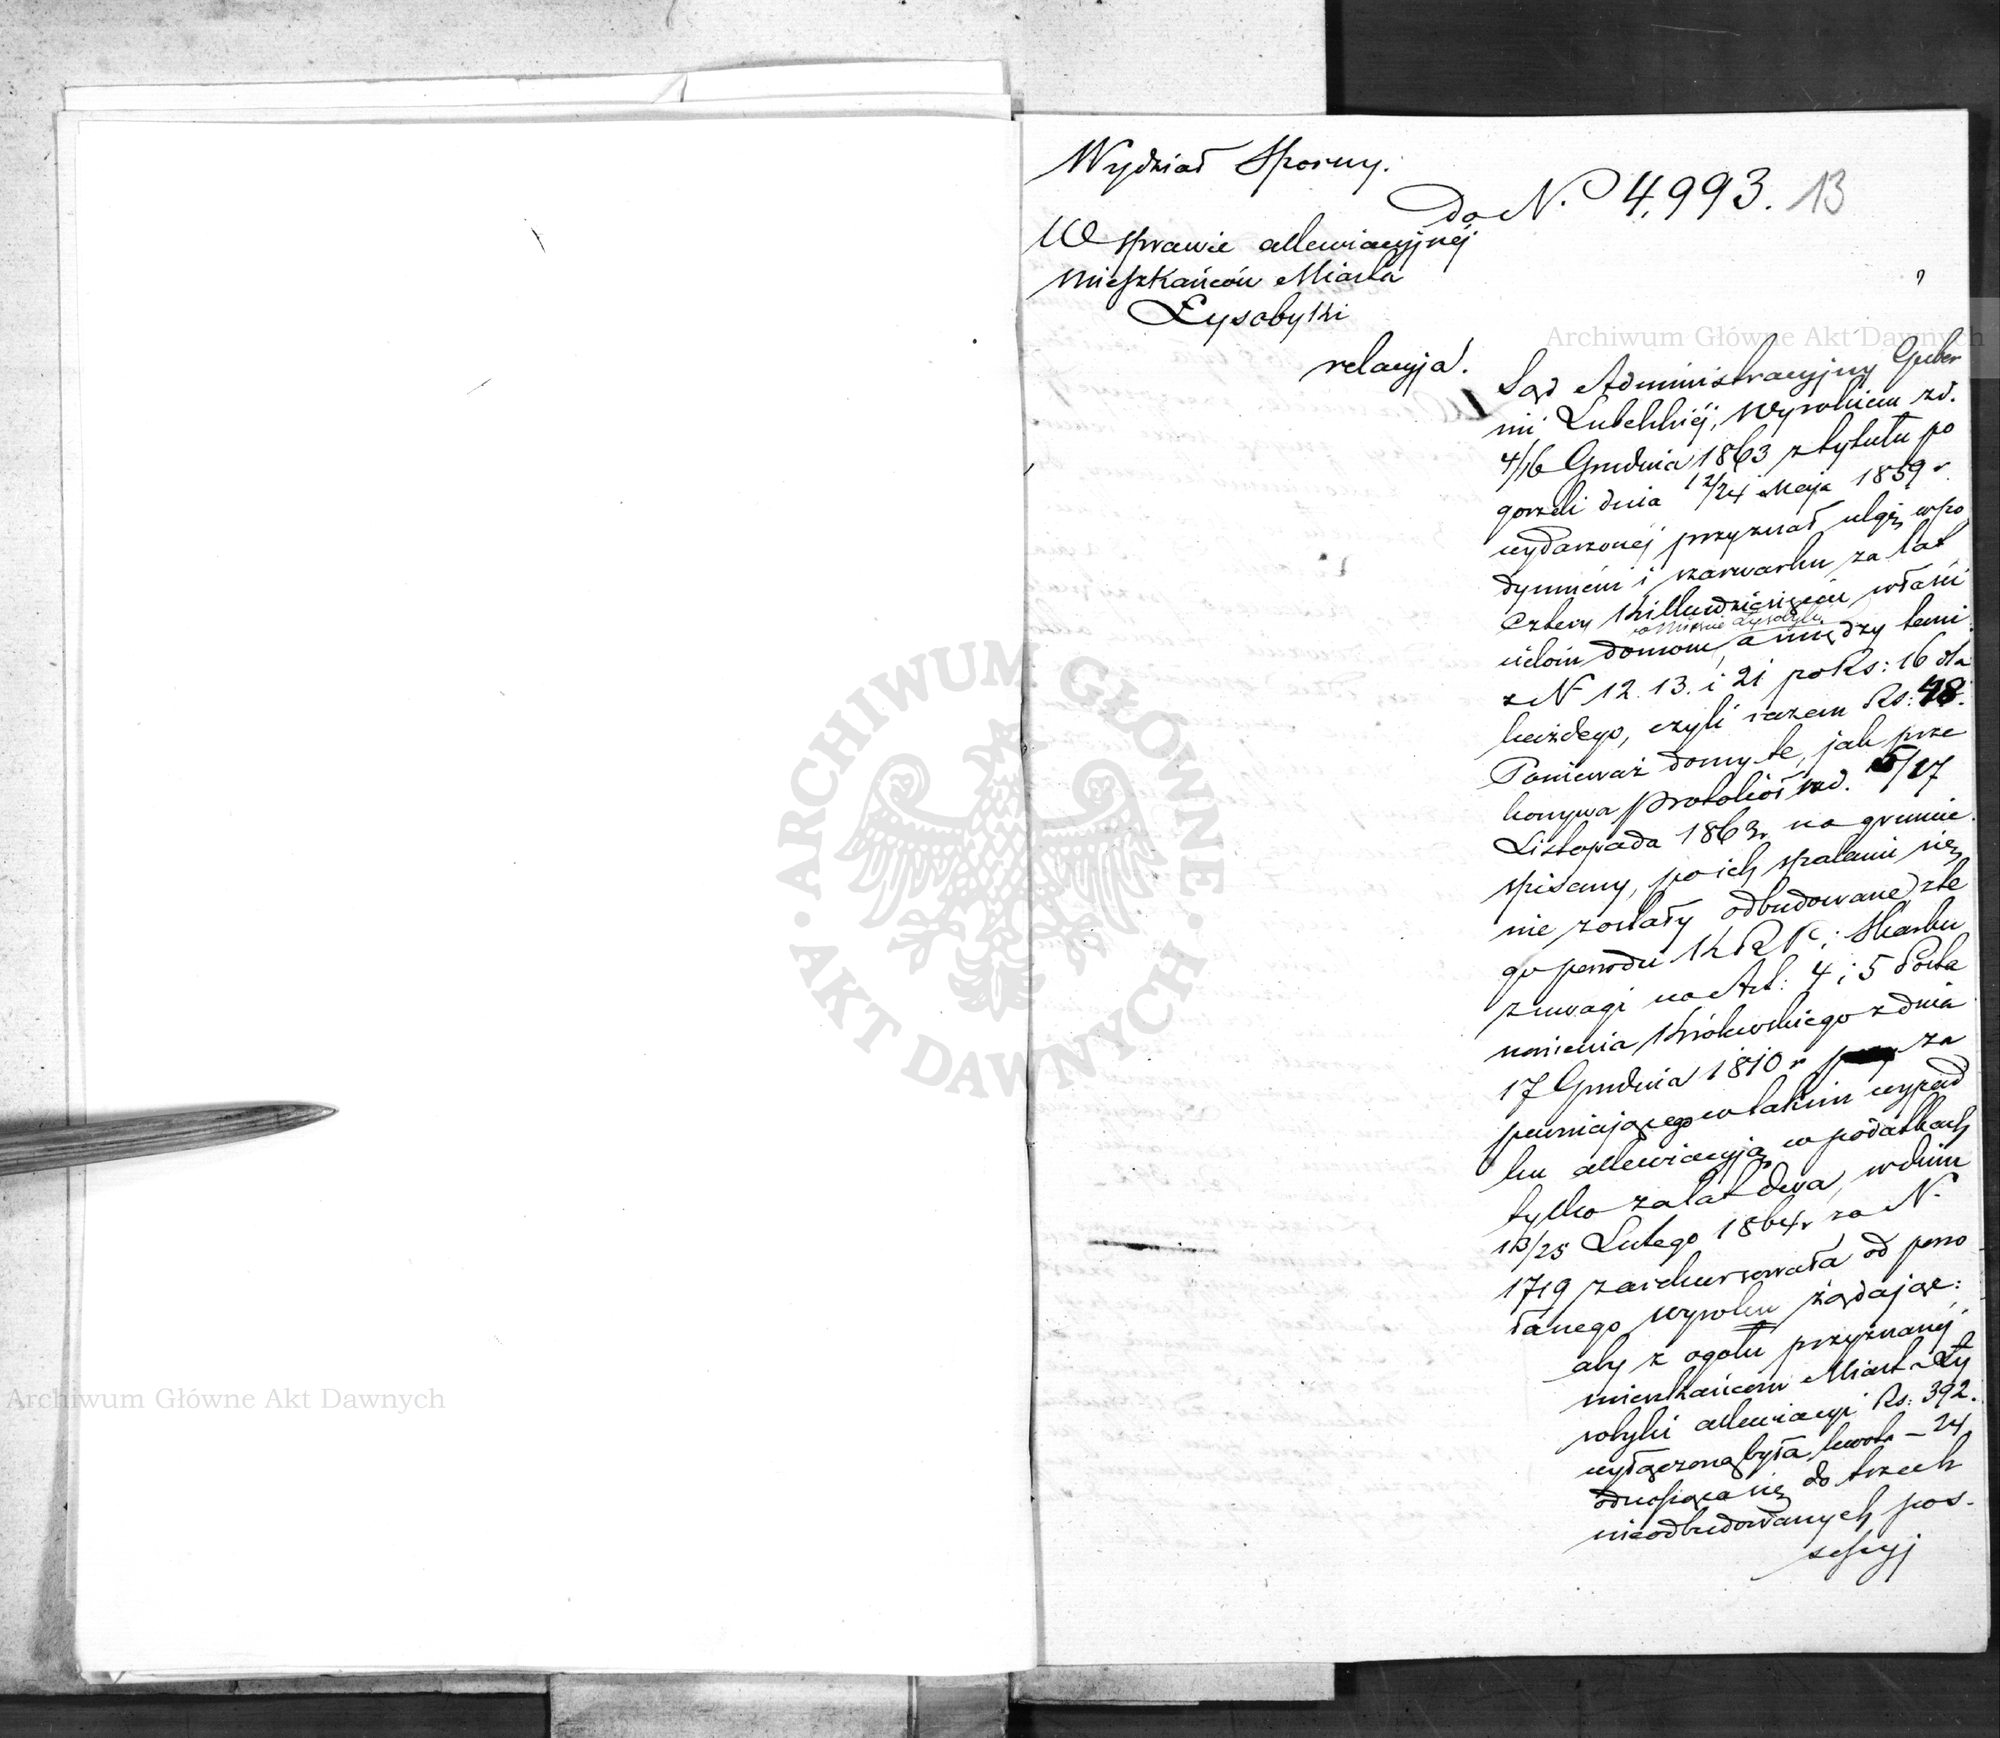 Wydział Sporny.
do N. 4,993. 13
W sprawie allewiacyjnéj
mieszkańców Miasta
Łysobyki
relacyja.
Sąd Administracyjny Guber
nii Lubelskiéj, wyrokiem z d.
4/16 Grudnia 1863 z tytułu po
gorzeli dnia 12/24 Maja 1859 r
wydarzonéj przyznał ulgę w po
dymném i szarwarku za lat
cztery kilkudziesięciu właści
w Mieście Łysobyki
cielom domów, a między temi
z N 12. 13. i 21 po Rs: 16 dla
każdego, czyli razem Rs: 48.
Ponieważ domy te, jak prze
konywa protokół z d. 5/17
Listopada 1863 r. na gruncie
spisany, po ich spaleniu się
nie zostały odbudowane, z te
go powodu K R P i Skarbu
z uwagi na Art: 4 i 5 Posta
nowienia Królewskiego z dnia
17 Grudnia 1810 r za
pewniającego w takim wypad
ku allewiacyją w podatkach
tylko za lat dwa, w dniu
13/25 Lutego 1864 r za N.
1719 zarekursowała od powo
łanego wyroku żądając:
aby z ogółu przyznanéj
mieszkańcom Miasta Ły
sobyki allewiacyi Rs: 392.
wyłączoną była kwota – 24,
odnosząca się do trzech
nieodbudowanych pos-
sessyj
Archiwum Główne Akt Dawnych
ARCHIWUM GŁÓWNE · AKT DAWNYCH ·
Archiwum Główne Akt Dawnych